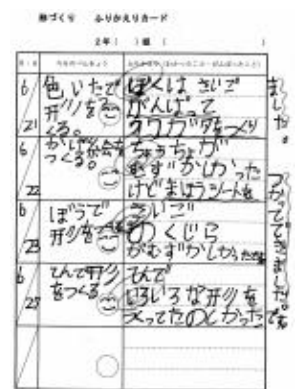 形づくり ふりかえりカード
2年( )組( )
6/21
色いたで
形をつ
くる。
ぼくは さいご
がんばって
クワガタをつくり
ました。
6/22
かげ絵を
つくる。
ちょうちょが
むずかしかった
けどまほうシートを
つかってできました。
6/23
ぼうで
形を
さいご
のくじら
がむずかしかった
です。
6/25
てんで形
をつくる
てんで
いろいろな形を
つくってたのしかった